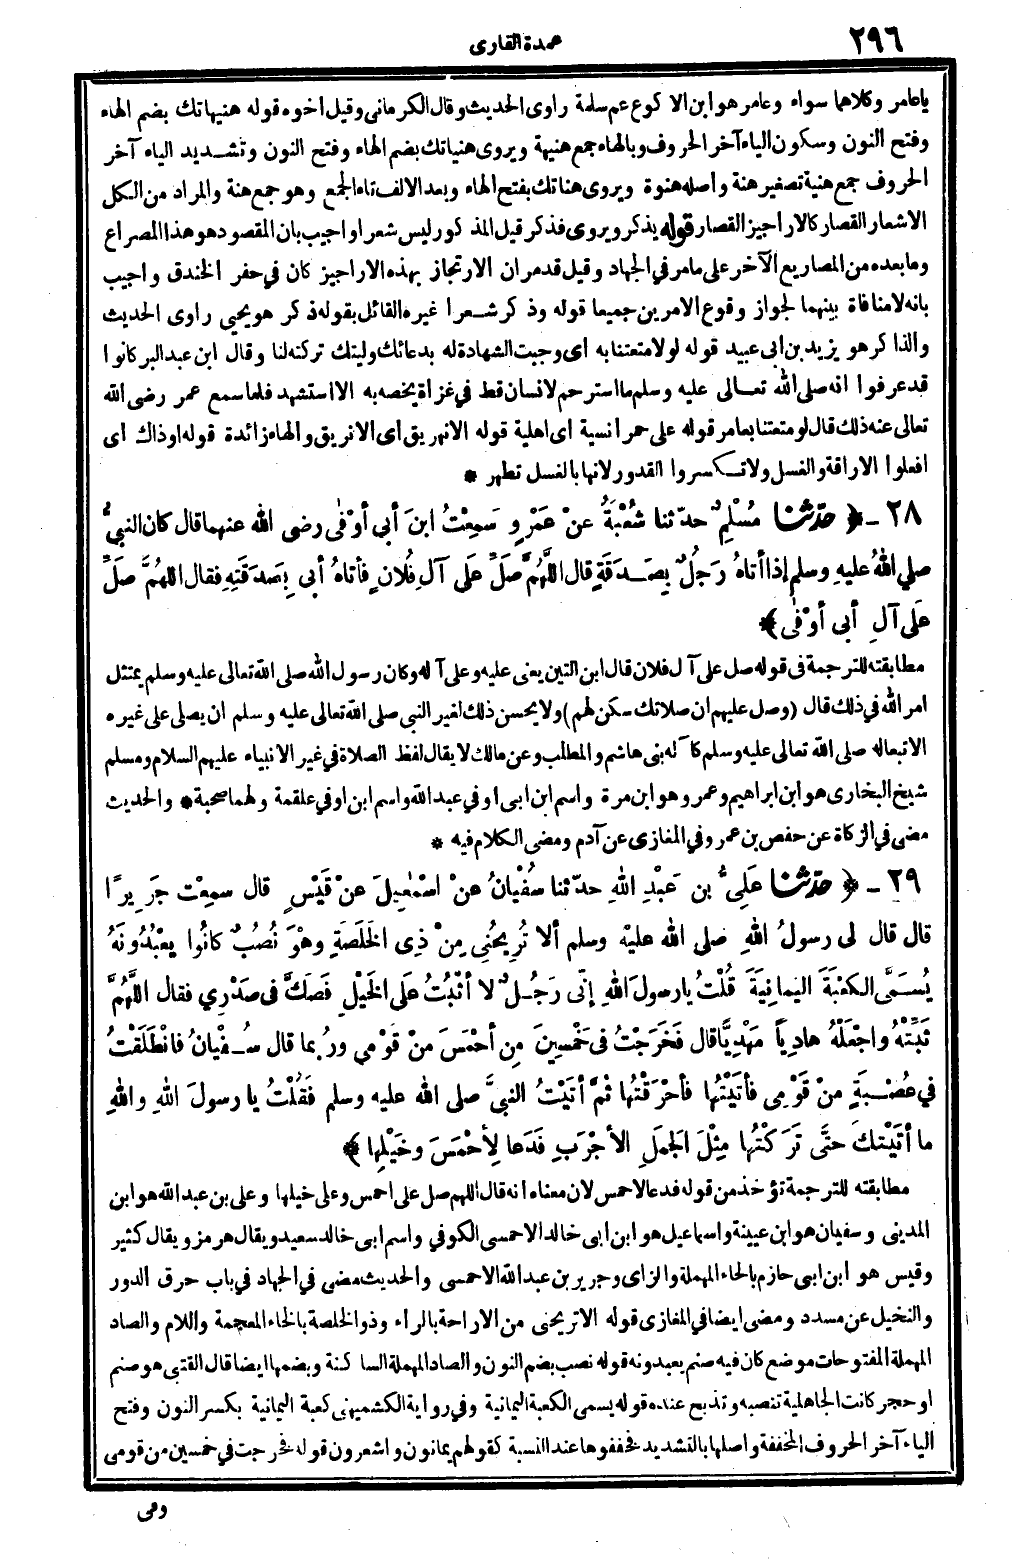 ٢٩٦
عمدة القارى
ياعامر وكلاهما سواء وعامر هو ابن الاكوع عم سلمة راوى الحديث وقال الكرمانى وقيل اخوه قوله هنيهاتك بضم الهاء
وفتح النون وسكون الياء آخر الحروف وبالهاء جمع هنيهة ويروى هنياتك بضم الهاء وفتح النون وتشديد الياء آخر
الحروف جمع هنية تصغير هنة واصله هنوة ويروى هناتك بفتح الهاء وبعد الالف تاء الجمع وهو جمع هنة والمراد من الكل
الاشعار القصار كالاراجيز القصار قوله يذكر ويروى فذكر قيل المذكور ليس شعرا واجيب بان المقصود هو هذا المصراع
وما بعده من المصاريع الآخر على ما مر في الجهاد وقيل قد مر ان الارتجاز بهذه الاراجيز كان في حفر الخندق واجيب
بانه لا منافاة بينهما لجواز وقوع الامرين جميعا قوله وذكر شعرا غيره القائل بقوله ذكر هو يحيى راوى الحديث
والذاكر هو يزيد بن ابى عبيد قوله لولا متعتنا به اى وجبت الشهادة له بدعائك وليتك تركته لنا وقال ابن عبد البر كانوا
قد عرفوا انه صلى الله تعالى عليه وسلم ما استرحم لانسان قط في غزاة يخصه به الا استشهد فلما سمع عمر رضى الله
تعالى عنه ذلك قال لو متعتنا بعامر قوله على حمر انسية اى اهلية قوله الا نهريق اى الا نريق والهاء زائدة قوله او ذاك اى
افعلوا الاراقة والغسل ولا تكسروا القدور لانها بالغسل تطهر *
٢٨ ـ ﴿ حدّثنا مُسْلِمٌ حدّثنا شُعْبَةُ عنْ عَمْرٍو سَمِعْتُ ابنَ أبي أوْفٰى رضى الله عنهما قال كان النبيُّ
صلى اللهُ عليهِ وسلم إذا أتاهُ رَجُلٌ بِصَدَقَةٍ قال اللَّهُمَّ صَلِّ عَلَى آلِ فُلَانٍ فأتاهُ أبي بِصَدَقَتِهِ فقال اللهُمَّ صَلِّ
عَلَى آلِ أبي أوْفٰى ﴾ *
مطابقته للترجمة فى قوله صل على آل فلان قال ابن التين يعنى عليه وعلى آله وكان رسول الله صلى الله تعالى عليه وسلم يمتثل
امر الله في ذلك قال (وصل عليهم ان صلاتك سكن لهم) ولا يحسن ذلك لغير النبي صلى الله تعالى عليه وسلم ان يصلى على غيره
الا تبعا له صلى الله تعالى عليه وسلم كآله بنى هاشم والمطلب وعن مالك لا يقال لفظ الصلاة في غير الانبياء عليهم السلام ومسلم
شيخ البخارى هو ابن ابراهيم وعمرو هو ابن مرة واسم ابن ابى اوفي عبد الله واسم ابن اوفي علقمة ولهما صحبة * والحديث
مضى في الزكاة عن حفص بن عمر وفي المغازى عن آدم ومضى الكلام فيه *
٢٩ ـ ﴿ حدّثنا عَلِيُّ بن عَبْدِ اللهِ حدّثنا سُفْيانُ عنْ اسْمٰعِيلَ عنْ قَيْسٍ قال سمِعْت جَرِيرًا
قال قال لى رسولُ اللهِ صلى الله عليْه وسلم ألا تُرِيحُنِى مِنْ ذِى الخَلَصَةِ وهْوَ نُصُبٌ كانُوا يعْبُدُونَهُ
يُسَمَّى الكَعْبَةَ اليمَانِيَةَ قُلْتُ يارسولَ اللهِ إنِّى رَجُلٌ لا أثْبُتُ علَى الخَيْلِ فَصَكَّ فى صَدْرِي فقال اللَّهُمَّ
ثَبِّتْهُ واجْعَلْهُ هادِياً مَهْدِيًّا قال فَخَرَجْتُ فى خَمْسِينَ مِن أحْمَسَ مِنْ قَوْمِي ورُبما قال سُفْيانُ فانْطَلَقْتُ
في عُصْبَةٍ مِنْ قَوْمِى فأتَيْتُها فأحْرَقْتُها ثُمَّ أتَيْتُ النبيَّ صلى الله عليه وسلم فَقُلْتُ يارسولَ اللهِ واللهِ
ما أتَيْتكَ حتَّى تَرَكْتُها مِثْلَ الجَملِ الأجْرَبِ فَدَعا لِأحْمَسَ وخَيْلِها ﴾
مطابقته للترجمة تؤخذ من قوله فدعا لاحمس لان معناه انه قال اللهم صل على احمس وعلى خيلها وعلى بن عبد الله هو ابن
المدينى وسفيان هو ابن عيينة واسماعيل هو ابن ابى خالد الاحمسى الكوفي واسم ابى خالد سعيد ويقال هرمز ويقال كثير
وقيس هو ابن ابى حازم بالحاء المهملة والزاى وجرير بن عبد الله الاحمسى والحديث مضى في الجهاد في باب حرق الدور
والنخيل عن مسدد ومضى ايضا في المغازى قوله الا تريحنى من الاراحة بالراء وذو الخلصة بالخاء المعجمة واللام والصاد
المهملة المفتوحات موضع كان فيه صنم يعبدونه قوله نصب بضم النون والصاد المهملة الساكنة وبضمها ايضا قال القتبى هو صنم
او حجر كانت الجاهلية تنصبه وتذبح عنده قوله يسمى الكعبة اليمانية وفي رواية الكشميهنى كعبة اليمانية بكسر النون وفتح
الياء آخر الحروف المخففة واصلها بالتشديد فخففوها عند النسبة كقولهم يمانون واشعرون قوله فخرجت في خمسين من قومى
وفى